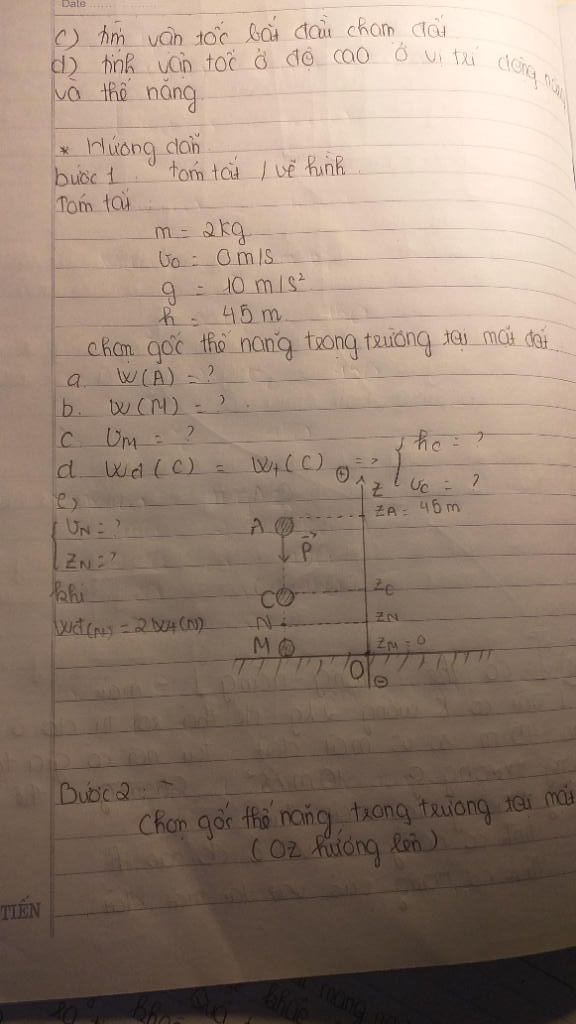 Date
c) tìm vận tốc bắt đầu chạm đất
d) tính vận tốc ở độ cao ở vị trí động năng
và thế năng
* Hướng dẫn
bước 1 tóm tắt / vẽ hình
Tóm tắt
m = 2kg
v₀ = 0 m/s
g = 10 m/s²
h = 45 m
chọn gốc thế năng trọng trường tại mặt đất
a. W(A) = ?
b. W(M) = ?
c. v_M = ?
d. Wđ(C) = Wt(C) = ? { h_C = ?
v_C = ?
e,
{ v_N = ?
z_N = ?
khi
Wđ(N) = 2Wt(N)
⊕ z
z_A = 45m
A
P⃗
C z_C
N z_N
M z_M = 0
O
⊖
Bước 2 :
Chọn gốc thế năng trọng trường tại mặt
(Oz hướng lên)
TIẾN